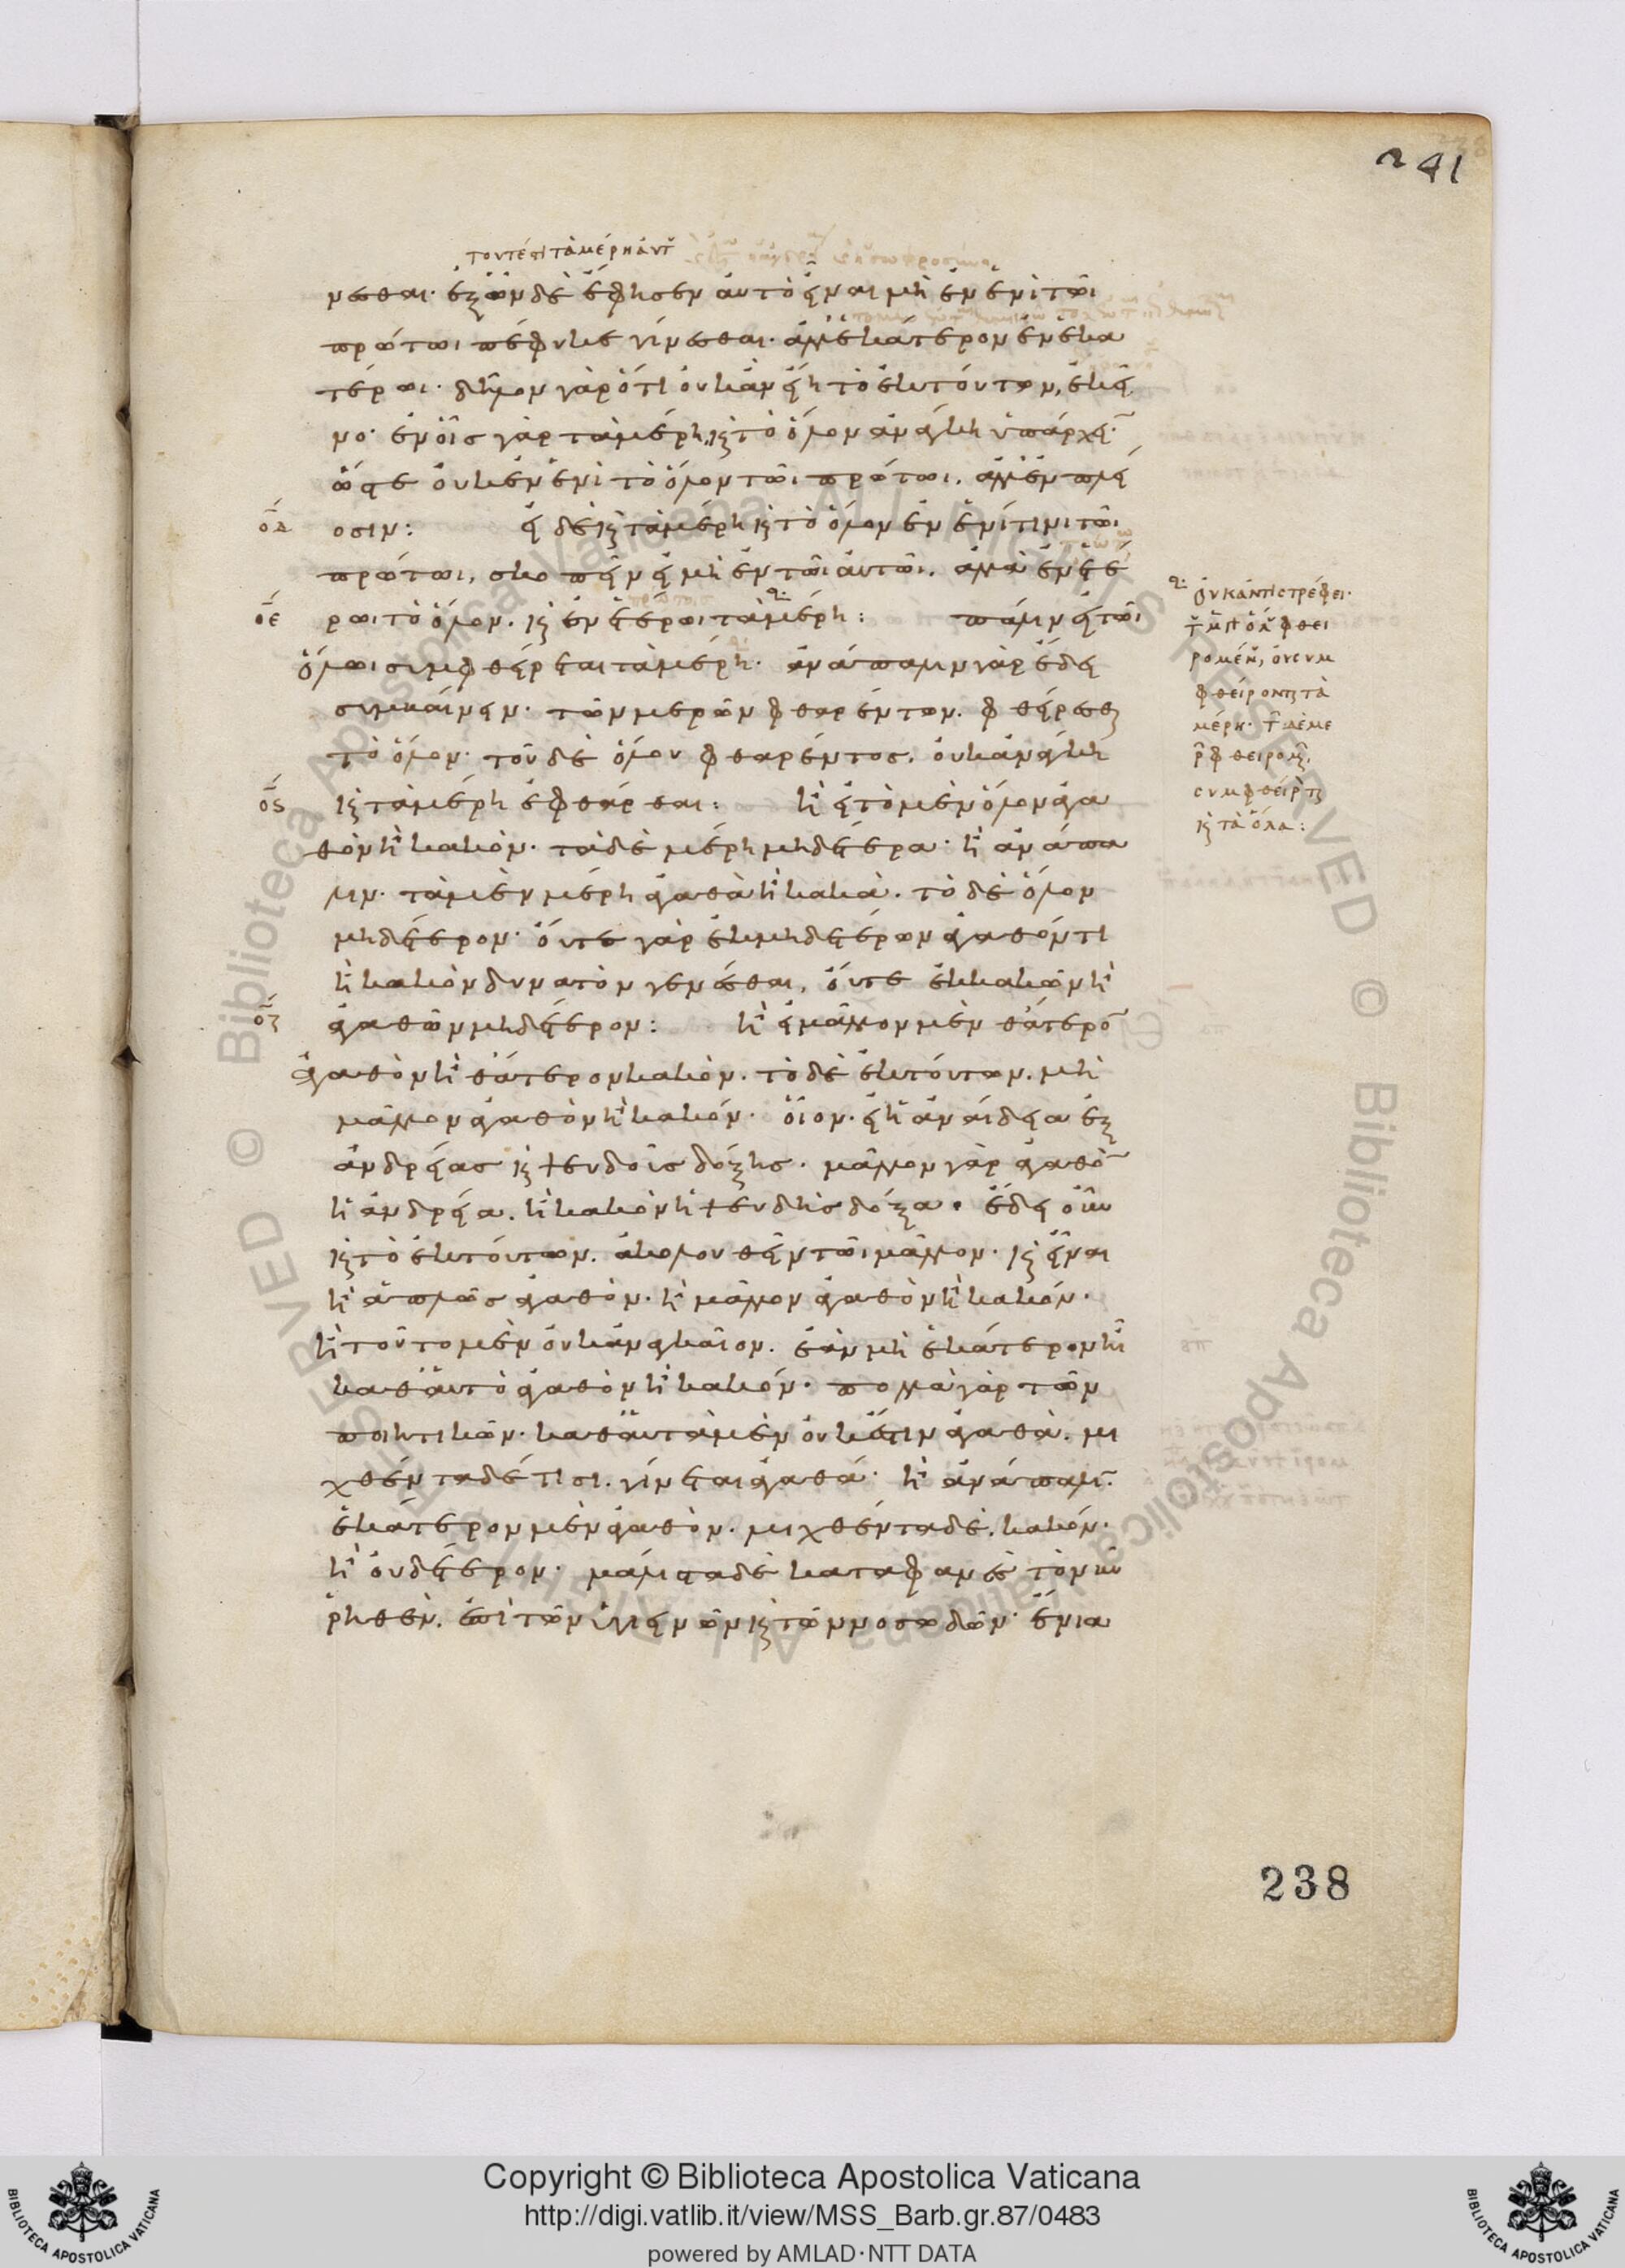 τουτέστι τὰ μέρη αὐτοῦ
νεσθαι· ἐξ ὧν δὲ ἔφησεν αὐτὸ εἶναι μὴ ἐν ἑνὶ τῶι
πρώτωι πέφυκε γίνεσθαι· ἀλλ' ἑκάτερον ἐν ἑκα
τέρωι· δῆλον γὰρ ὅτι οὐκ ἂν εἴη τὸ ἐκ τούτων, ἐκεῖ
νο· ἐν οἷς γὰρ τὰ μέρη, καὶ τὸ ὅλον ἀνάγκη ὑπάρχειν·
ὥστε οὐκ ἐν ἑνὶ τὸ ὅλον τῶι πρώτωι, ἀλλ' ἐν πλεί
οδ οσιν: εἰ δὲ καὶ τὰ μέρη καὶ τὸ ὅλον ἐν ἑνί τινι τῶι
πρώτωι, σκοπεῖν εἰ μὴ ἐν τῶι αὐτῶι, ἀλλὰ ἐν ἑτέ
οε ρωι τὸ ὅλον. καὶ ἐν ἑτέρωι τὰ μέρη: πάλιν εἰ τῶι
ὅλωι συμφθείρεται τὰ μέρη· ἀνάπαλιν γὰρ ἔδει
συμβαίνειν· τῶν μερῶν φθαρέντων. φθείρεσθαι
τὸ ὅλον· τοῦ δὲ ὅλου φθαρέντος, οὐκ ἀνάγκη
ος καὶ τὰ μέρη ἐφθάρθαι: ἢ εἰ τὸ μὲν ὅλον ἀγα
θὸν ἢ κακόν· τὰ δὲ μέρη μηδέτερα· ἢ ἀνάπα
λιν· τὰ μὲν μέρη ἀγαθὰ ἢ κακὰ. τὸ δὲ ὅλον
μηδέτερον· οὔτε γὰρ ἐκ μηδετέρων ἀγαθόν τι
ἢ κακὸν δυνατὸν γενέσθαι, οὔτε ἐκ κακῶν ἢ
οζ ἀγαθῶν μηδέτερον: ἢ εἰ μᾶλλον μὲν θάτερον
ἀγαθὸν ἢ θάτερον κακὸν. τὸ δὲ ἐκ τούτων. μὴ
μᾶλλον ἀγαθὸν ἢ κακόν· οἷον. εἰ ἡ ἀναίδεια ἐξ
ἀνδρείας καὶ ψευδοῦς δόξης. μᾶλλον γὰρ ἀγαθὸν
ἡ ἀνδρεία. ἢ κακὸν ἡ ψευδὴς δόξα. ἔδει οὖν
καὶ τὸ ἐκ τούτων. ἀκολουθεῖν τῶι μᾶλλον· καὶ εἶναι
ἢ ἁπλῶς ἀγαθὸν. ἢ μᾶλλον ἀγαθὸν ἢ κακόν.
ἢ τοῦτο μὲν οὐκ ἀναγκαῖον. ἐὰν μὴ ἑκάτερον ἦι
καθ' αὑτὸ ἀγαθὸν ἢ κακόν· πολλὰ γὰρ τῶν
ποιητικῶν. καθ' αὑτὰ μὲν οὐκ ἔστιν ἀγαθὰ. μι
χθέντα δέ τισι. γίνεται ἀγαθά· ἢ ἀνάπαλιν.
ἑκάτερον μὲν ἀγαθὸν. μιχθέντα δὲ. κακόν.
ἢ οὐδέτερον· μάλιστα δὲ καταφανὲς τὸ νῦν
ῥηθὲν. ἐπὶ τῶν ὑγιεινῶν καὶ τῶν νοσωδῶν· ἔνια
οὐκ ἀντιστρέφει·
τῶν μὲν ὅλων φθει
ρομένων, οὐ συμ
φθείρονται τὰ
μέρη· τῶν δὲ με
ρῶν φθειρομένων,
συμφθείρεται
καὶ τὰ ὅλα:
241
238
Copyright © Biblioteca Apostolica Vaticana
http://digi.vatlib.it/view/MSS_Barb.gr.87/0483
powered by AMLAD·NTT DATA
BIBLIOTECA APOSTOLICA VATICANA
BIBLIOTECA APOSTOLICA VATICANA